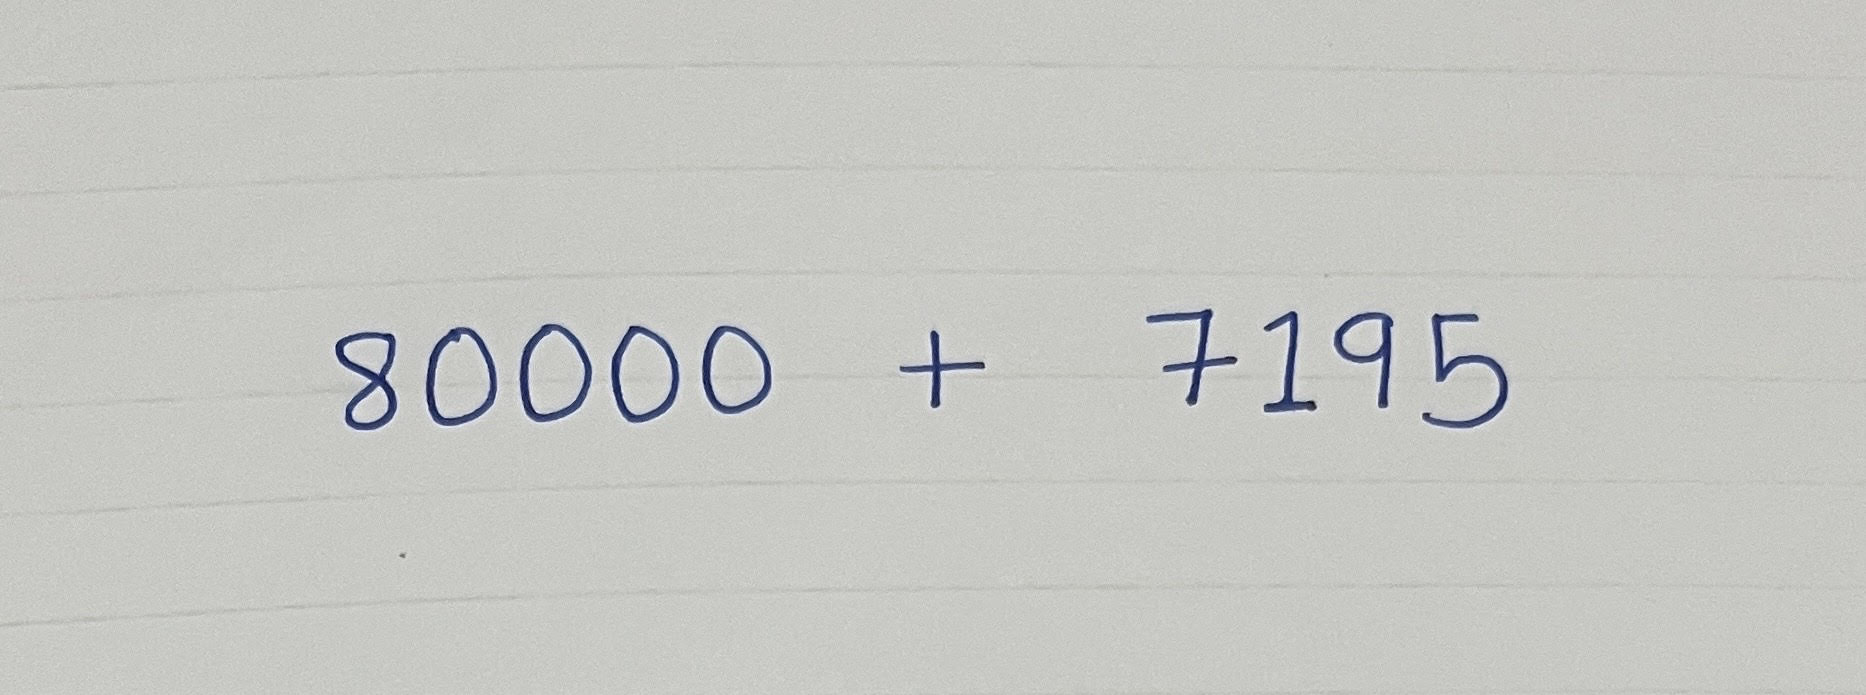 80000 + 7195